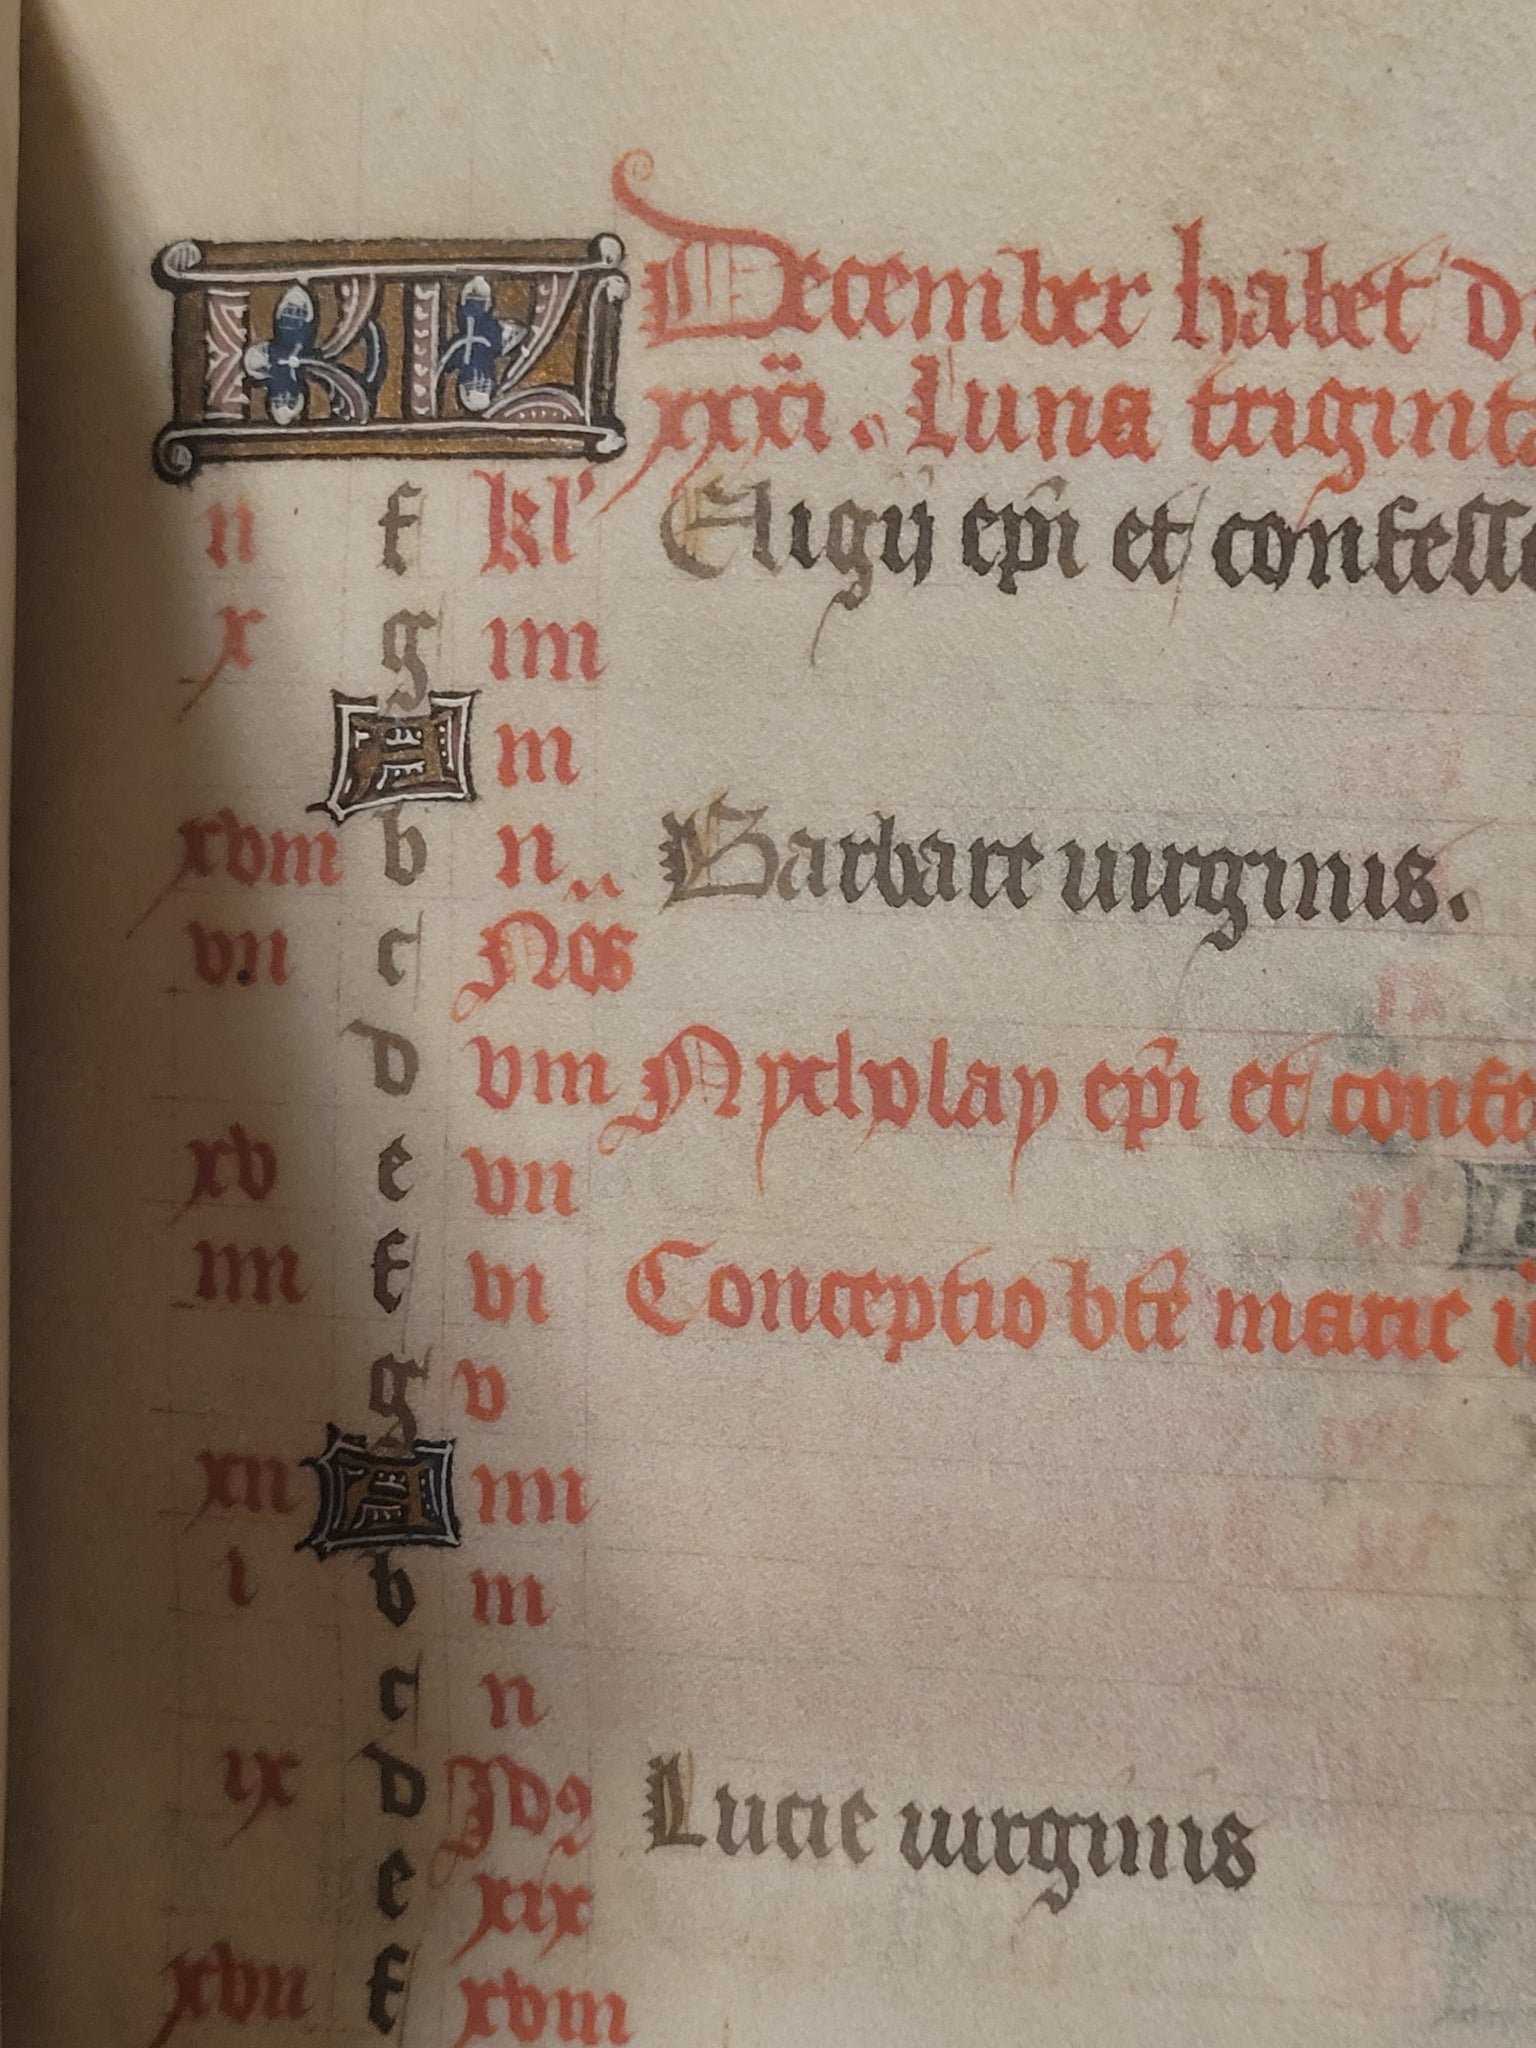 KL December habet d
xxxi. Luna trigint
ii f kl' Eligij epi et confess
x g iiii
A iii
xviii b ii Barbare uirginis.
vii c Nos
d viii Nycholay epi et confe
xv e vii
iiii f vi Conceptio bte marie
g v
xii A iiii
i b iii
c ii
ix d Idꝰ Lucie uirginis
e xix
xvii f xviii